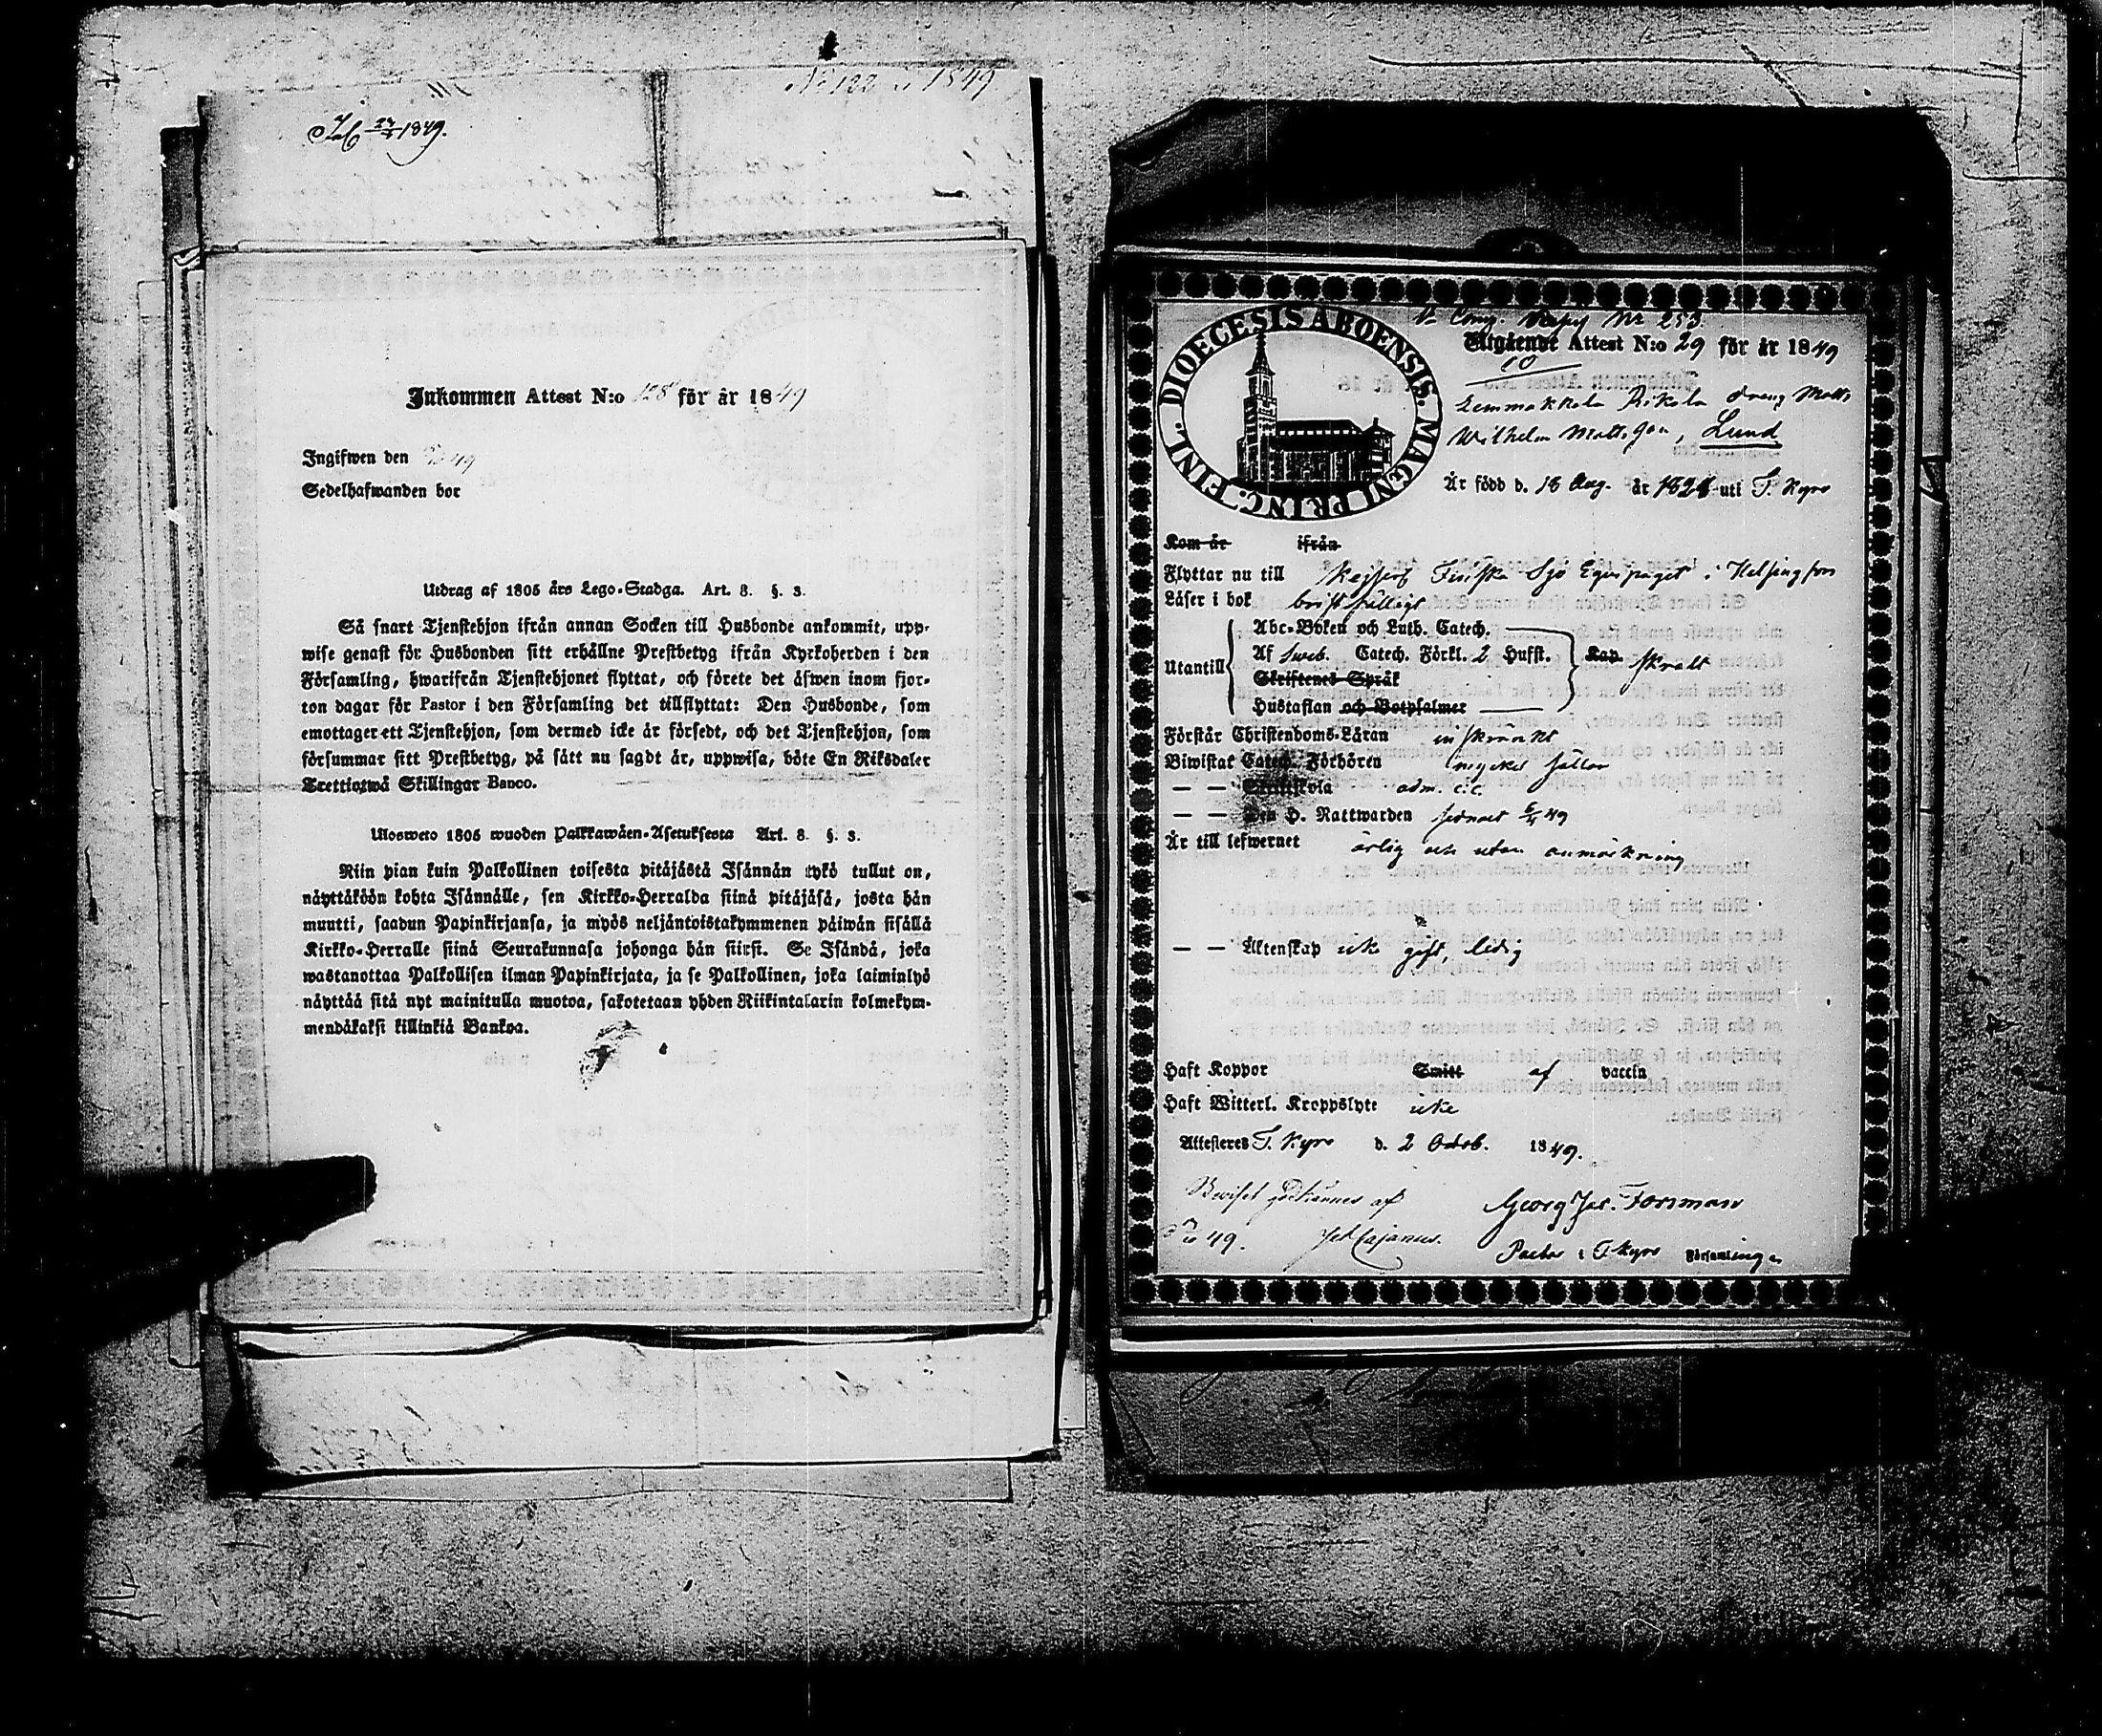 No 122 1849
1849.
Inkommen Attest N:o 128 för år 1849
Ingifwen den 49
Sedelhafwanden bor
Utdrag af 1805 års Lego-Stadga. Art. 8. §. 3.
Så snart Tjenstehjon ifrån annan Socken till Husbonde ankommit, upp-
wise genast för Husbonden sitt erhållne Prestbetyg ifrån Kyrkoherden i den
Församling, hwarifrån Tjenstehjonet flyttat, och förete det äfwen inom fjor-
ton dagar för Pastor i den Församling det tillflyttat: Den Husbonde, som
emottager ett Tjenstehjon, som dermed icke är försedt, och det Tjenstehjon, som
försummar sitt Prestbetyg, på sätt nu sagdt är, uppwisa, böte En Riksdaler
Trettiotwå Skillingar Banco.
Ulosweto 1805 wuoden Palkkawäen-Asetuksesta Art. 8. §. 3.
Niin pian kuin Palkollinen toisesta pitäjästä Isännän tykö tullut on,
näyttäköön kohta Isännälle, sen Kirkko-Herralda siinä pitäjäsä, josta hän
muutti, saadun Papinkirjansa, ja myös neljäntoistakymmenen päiwän sisällä
Kirkko-Herralle siinä Seurakunnasa johonga hän siirsi. Se Isändä, joka
wastanottaa Palkollisen ilman Papinkirjata, ja se Palkollinen, joka laiminlyö
näyttää sitä nyt mainitulla muotoa, sakotetaan yhden Riikintalarin kolmekym-
mendäkaksi killinkiä Bankoa.
DIOECESIS ABOENSIS. MAGNI PRINC. FINL.
Comp. No 253.
Utgående Attest N:o 29 för år 1849
10
Lemmakkala Pikola dräng Matts
Wilhelm Mattsson, Lund
Är född d. 18 Aug. år 1828 uti T. Kyro
Kom år ifrån
Flyttar nu till Kejserl Finska Sjö Equipaget i Helsingfors
Läser i bok bristfälligt
Utantill Abc-Boken och Luth. Catech.
Af Sweb. Catech. Förkl. 2 Hufst. Kap. skralt
Skriftenes Språk
Hustaflan och Botpsalmer
Förstår Christendoms-Läran inskränkt
Biwistat Catech. Förhören mycket sällan
— — Skriftskola adm. c:c.
— — Den H. Nattwarden senast 49
Är till lefwernet ärlig och utan anmärkning
— — Äktenskap icke gift, ledig
Haft Koppor Smitt af vaccin
Haft Witterl. Kroppslyte icke
Attesteres T. Kyro d. 2 Octob. 1849.
Beviset godkännes af
49. Cajanus.
Georg Jac. Forsman
Pastor i T. Kyro Församlingen